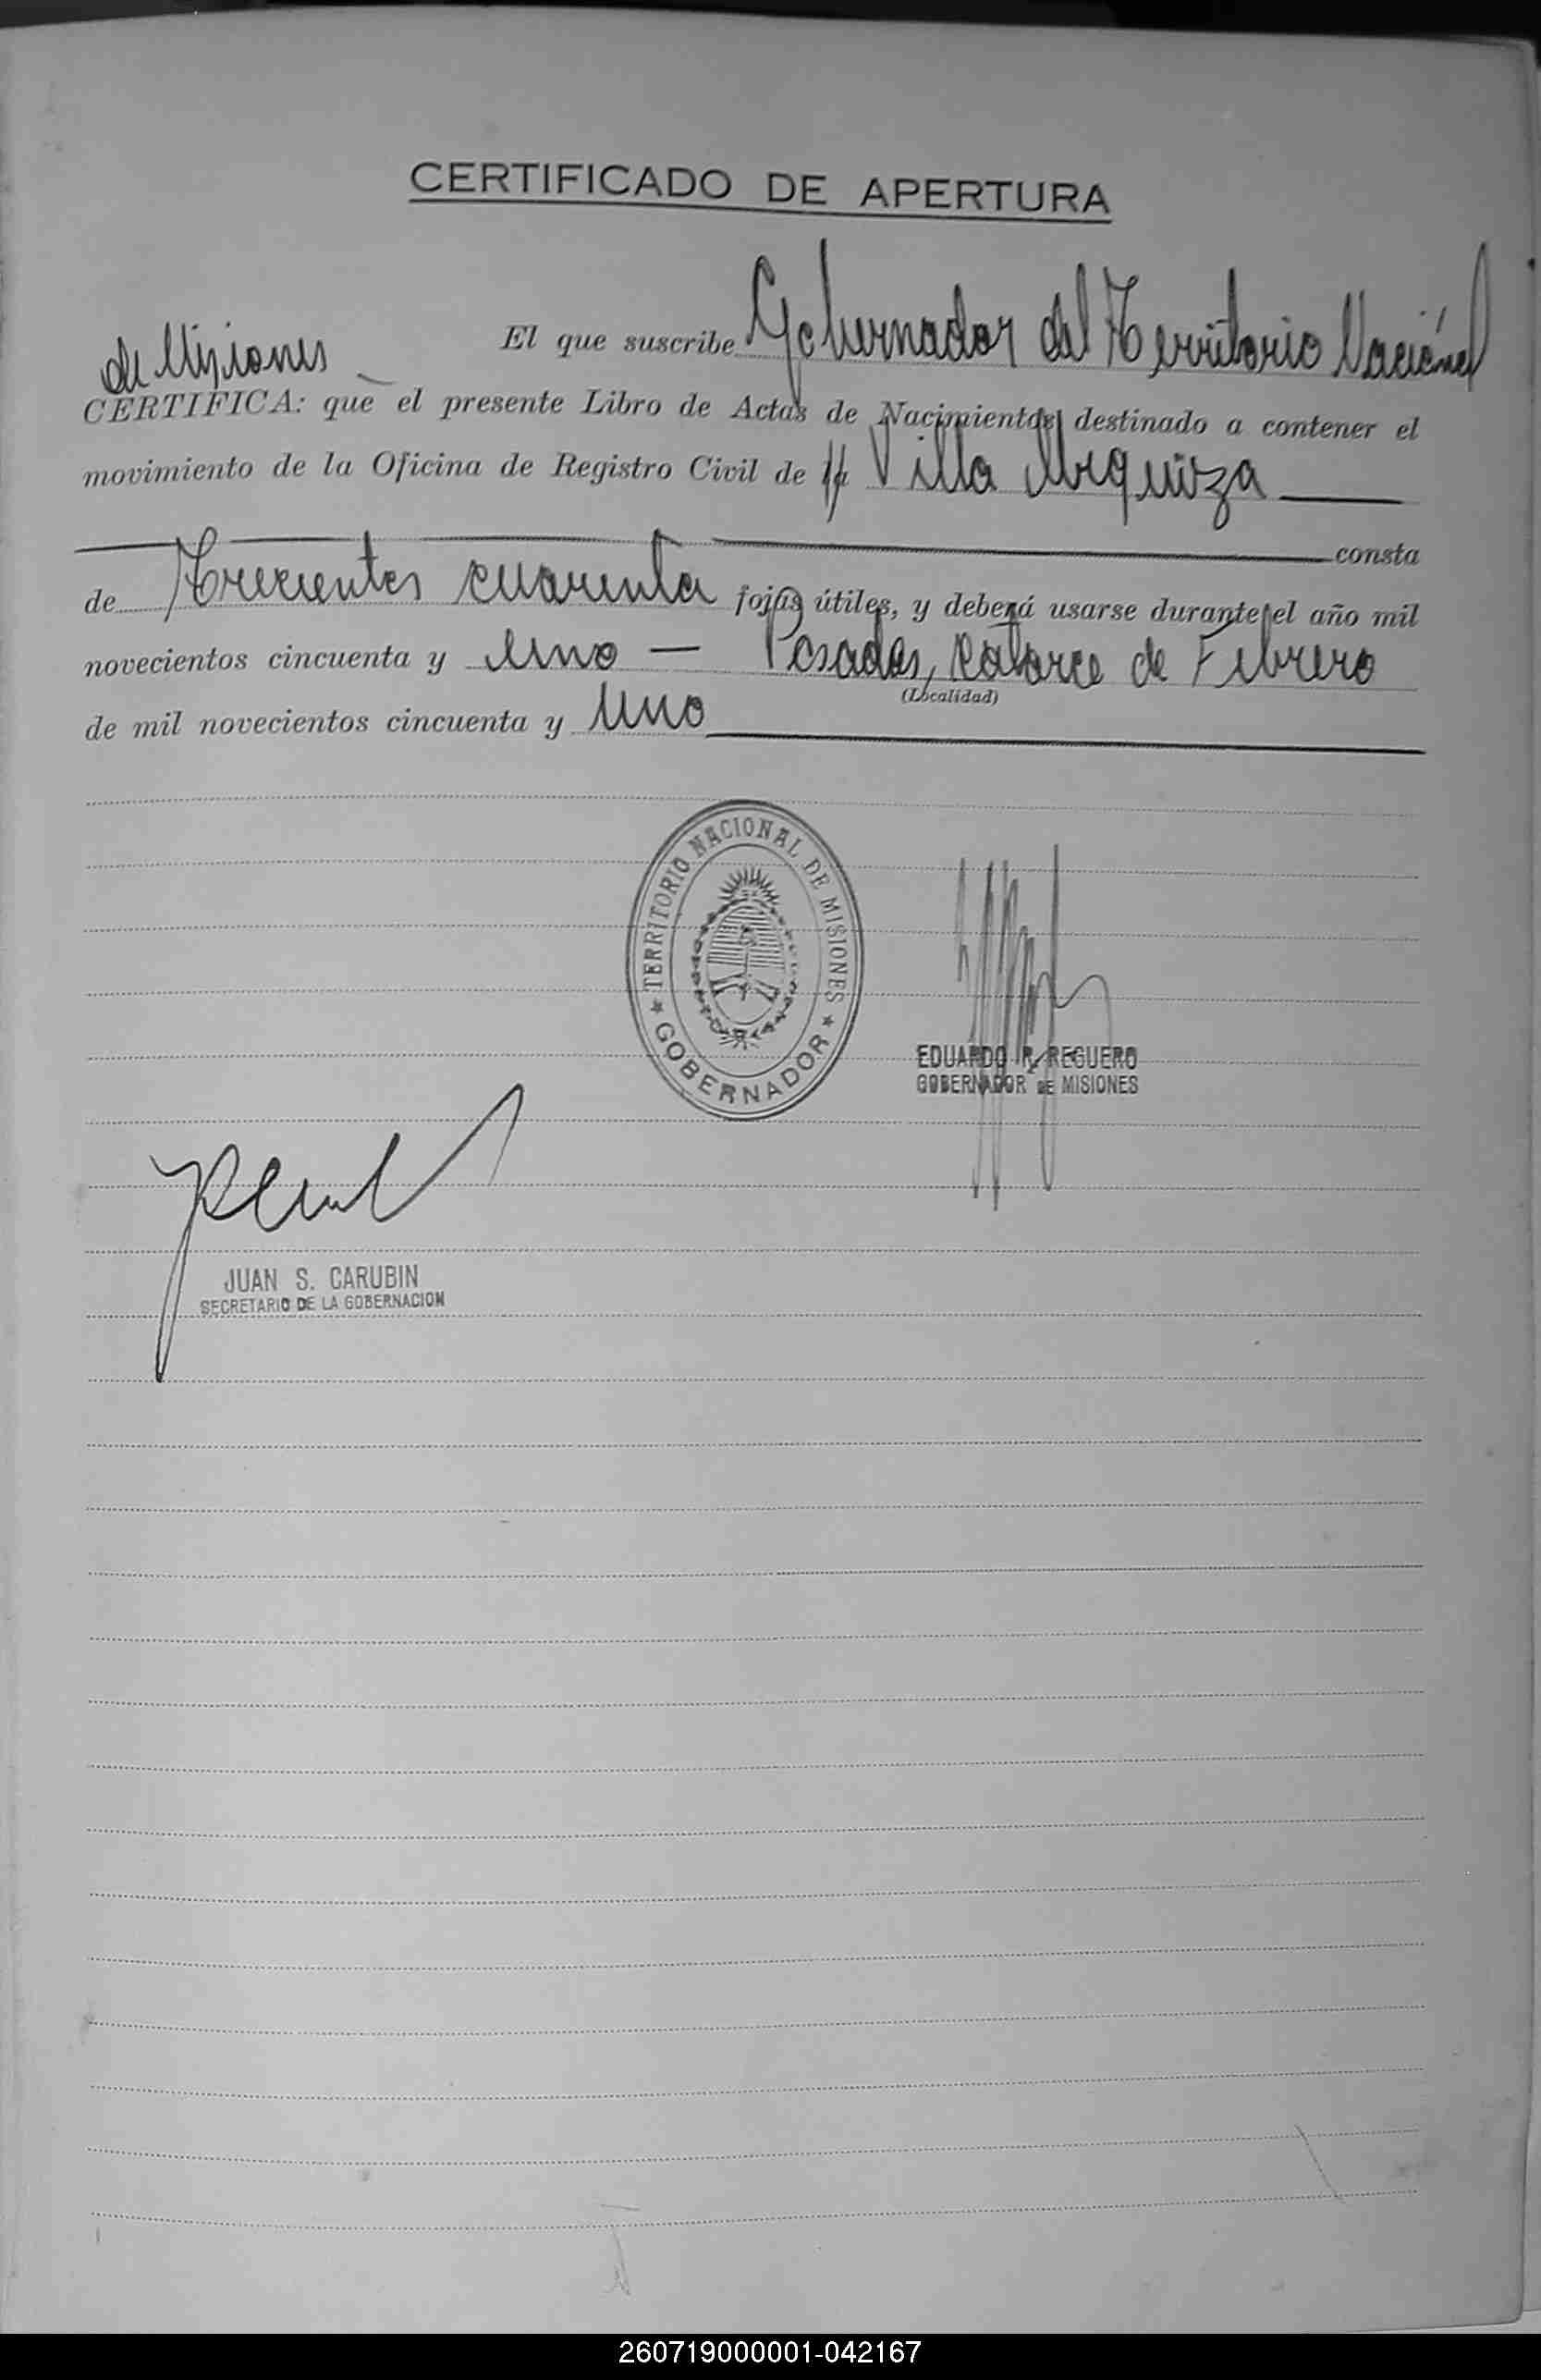 CERTIFICADO DE APERTURA
El que suscribe Gobernador del Territorio Nacional
de Misiones
CERTIFICA: que el presente Libro de Actas de Nacimientos, destinado a contener el
movimiento de la Oficina de Registro Civil de la Villa Urquiza
consta
de Trecientes cuarenta fojas útiles, y deberá usarse durante el año mil
novecientos cincuenta y uno — Posadas, catorce de Febrero
(Localidad)
de mil novecientos cincuenta y uno
TERRITORIO NACIONAL DE MISIONES
GOBERNADOR
EDUARDO R. REGUERO
GOBERNADOR DE MISIONES
JUAN S. CARUBIN
SECRETARIO DE LA GOBERNACION
260719000001-042167